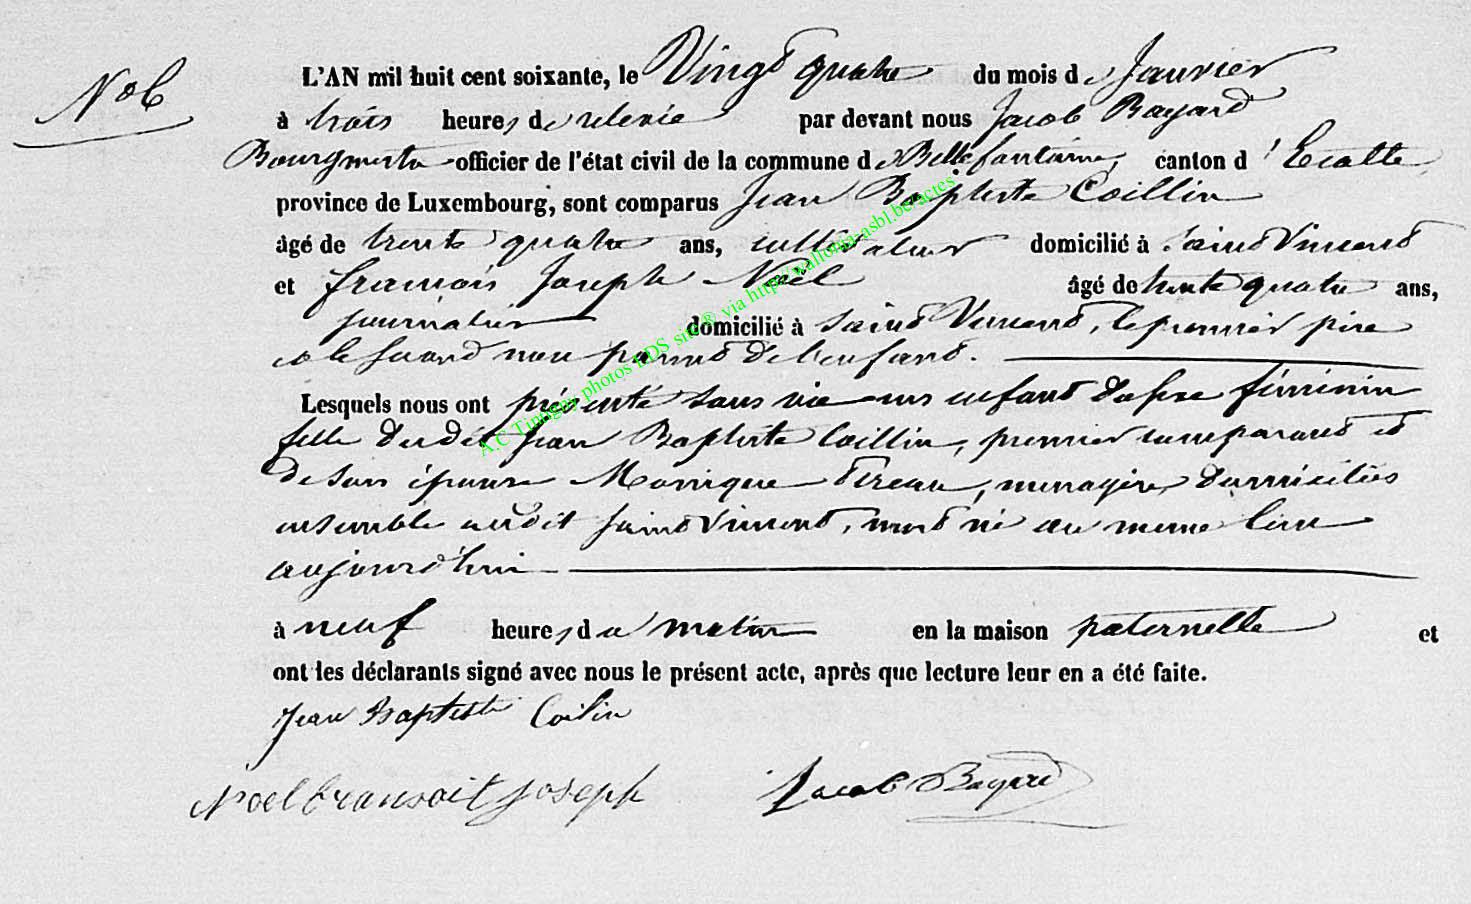 No 6
L'AN mil huit cent soixante, le Vingt quatre du mois de Janvier
à trois heures de relevée par devant nous Jacob Bayard
Bourgmestre officier de l'état civil de la commune de Bellefontaine, canton d'Etalle,
province de Luxembourg, sont comparus Jean Baptiste Coillin
âgé de trente quatre ans, cultivateur domicilié à Saint Vincent
et françois Joseph Noël âgé de trente quatre ans,
journalier domicilié à Saint Vincent, le premier père
et le second non parent de l'enfant.
Lesquels nous ont présenté sans vie un enfant du sexe féminin
fille du dit Jean Baptiste Coillin, premier comparant et
de son épouse Monique, ménagère, domiciliés
ensemble audit Saint Vincent, mort né au même lieu
aujourd'hui
à neuf heures du matin en la maison paternelle et
ont les déclarants signé avec nous le présent acte, après que lecture leur en a été faite.
Jean Baptiste Coilin
Noel fransoit joseph Jacob Bayard
A.C Tintigny photos LDS site® via http://wallonia-asbl.be/actes